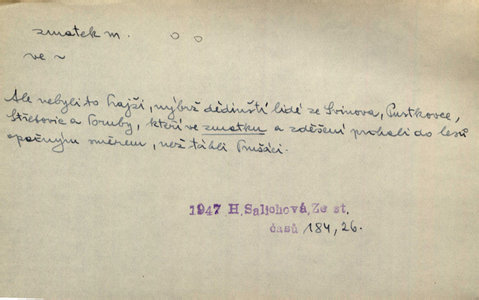 zmatek m.
ve ~
Ale nebyli to hajží, nýbrž dědinští lidé ze Svinova, Pustkovce,
Střetovic a Poruby, kteří ve zmatku a zděšení prchali do lesů
opačným směrem, než táhli Prušáci.
1947 H. Salichová, Ze st.
časů 184, 26.